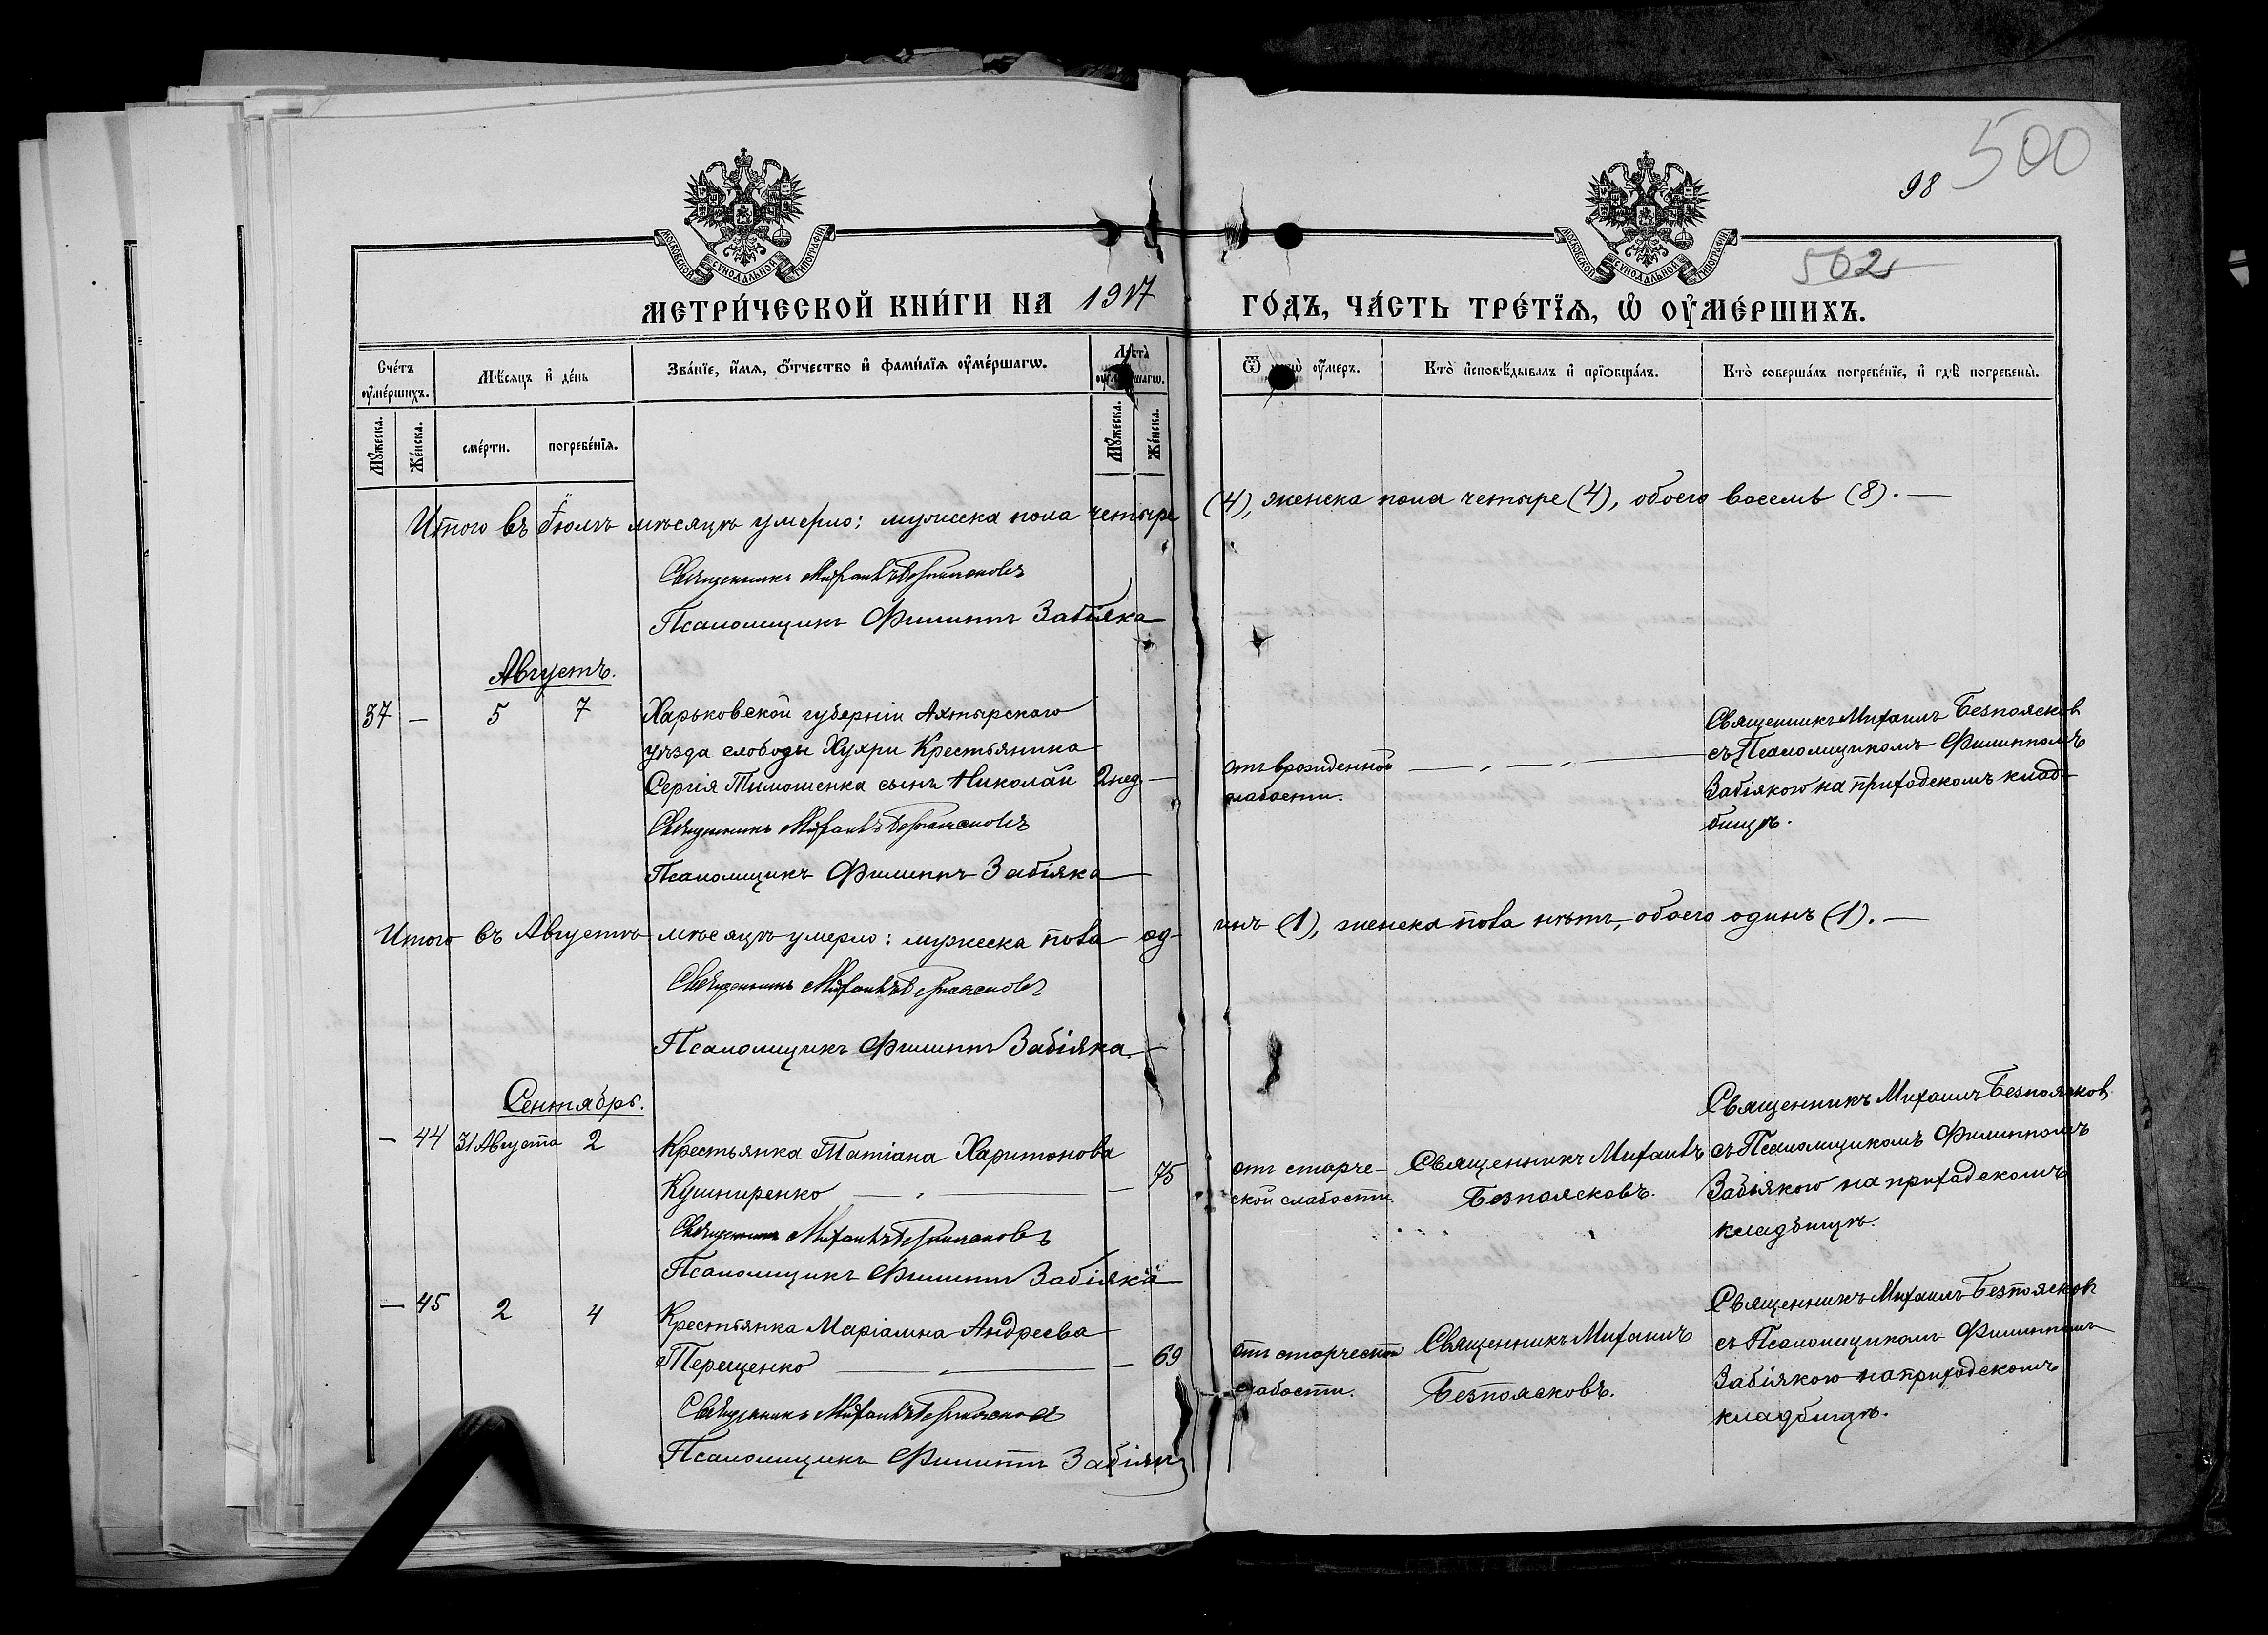 98
500
502
МОСКОВСКОЙ СУНОДАЛЬНОЙ ТИПОГРАФІИ
МОСКОВСКОЙ СУНОДАЛЬНОЙ ТИПОГРАФІИ
МЕТРИ́ЧЕСКОЙ КНИ́ГИ НА 1917 ГО́ДЪ, ЧА́СТЬ ТРЕ́ТЇѦ, Ѡ҆ ОУ҆МЕ́РШИХЪ.
Сче́тъ оу҆ме́ршихъ.
Мѣ́сяцъ и҆ де́нь
Зва́нїе, и҆́мѧ, ѻ҆́тчество и҆ фамѝлїѧ оу҆ме́ршагѡ.
Лѣта̀ оу҆ме́ршагѡ.
Ѿ чегѡ̀ оу҆́меръ.
Кто̀ и҆сповѣ́дывалъ и҆ прїѡбща́лъ.
Кто̀ соверша́лъ погребе́нїе, и҆ гдѣ̀ погребены̀.
Мꙋ́жеска.
Же́нска.
сме́рти.
погребе́нїѧ.
Мꙋ́жеска.
Же́нска.
Итого въ Іюлѣ мѣсяцѣ умерло: мужеска пола четыре (4), женска пола четыре (4), обоего восемь (8). —
Священникъ Михаилъ Безпоясковъ
Псаломщикъ Филиппъ Забіяка
Августъ.
37 — 5 7 Харьковской губерніи Ахтырского
уѣзда слободы Хухри Крестьянина
Сергія Тимошенка сынъ Николай 2 нед —
отъ врожденной
слабости.
Священникъ Михаилъ Безпоясков
съ Псаломщикомъ Филиппомъ
Забіякою на приходскомъ клад-
бищѣ.
Священникъ Михаилъ Безпоясковъ
Псаломщикъ Филиппъ Забіяка
Итого въ Августѣ мѣсяцѣ умерло: мужеска пола од- инъ (1), женска пола нѣтъ, обоего одинъ (1). —
Священникъ Михаилъ Безпоясковъ
Псаломщикъ Филиппъ Забіяка
Сентябрь.
— 44 31 Августа 2 Крестьянка Татіана Харитонова
Кушниренко — 75
отъ старче-
ской слабости.
Священникъ Михаилъ
Безпоясковъ.
Священникъ Михаилъ Безпоясков
съ Псаломщикомъ Филиппомъ
Забіякою на приходскомъ
кладбищѣ.
Священникъ Михаилъ Безпоясковъ
Псаломщикъ Филиппъ Забіяка
— 45 2 4 Крестьянка Маріамна Андреева
Терещенко — 69
отъ старческой
слабости.
Священникъ Михаилъ
Безпоясковъ.
Священникъ Михаилъ Безпоясков
съ Псаломщикомъ Филиппомъ
Забіякою на приходскомъ
кладбищѣ.
Священникъ Михаилъ Безпоясковъ
Псаломщикъ Филиппъ Забіяка